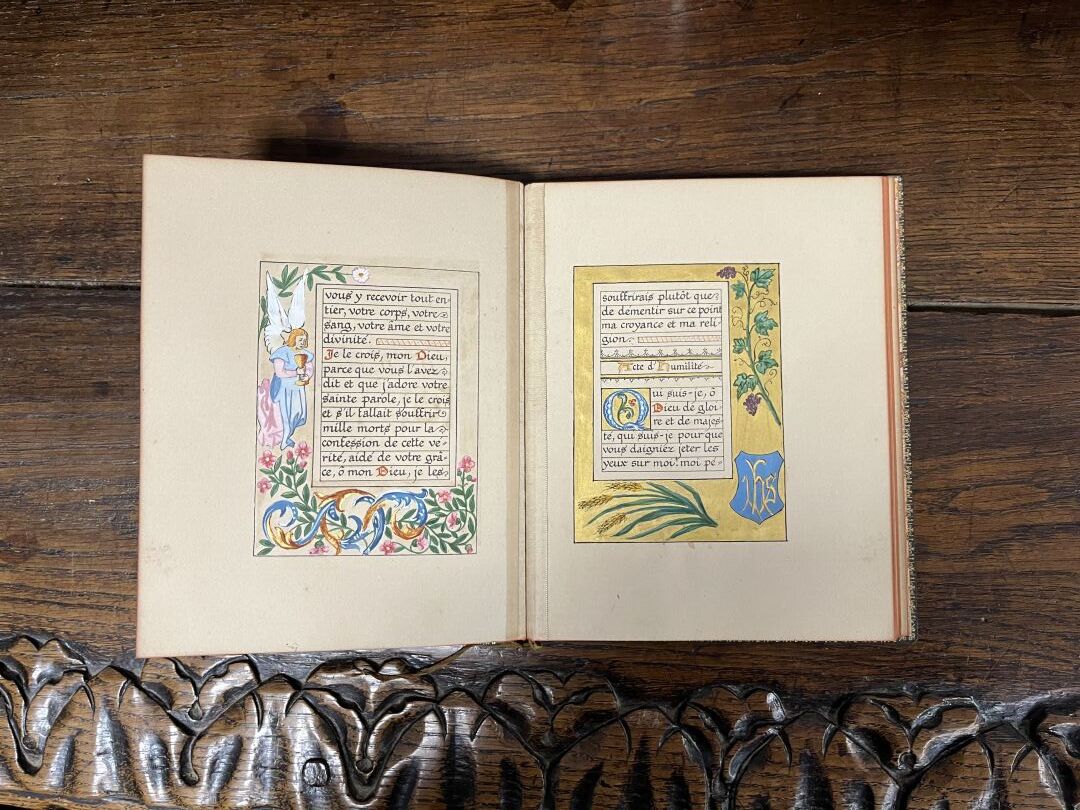 vous y recevoir tout en-
tier, votre corps, votre
sang, votre âme et votre
divinité.
Je le crois, mon Dieu,
parce que vous l'avez
dit et que j'adore votre
sainte parole, je le crois
et s'il fallait souffrir
mille morts pour la
confession de cette vé-
rité, aidé de votre grâ-
ce, ô mon Dieu, je les
souffrirais plutôt que
de dementir sur ce point
ma croyance et ma reli-
gion.
Acte d'Humilité
Qui suis-je, ô
Dieu de gloi-
re et de majes-
té, qui suis-je pour que
vous daigniez jeter les
yeux sur moi. moi pé-
ihs